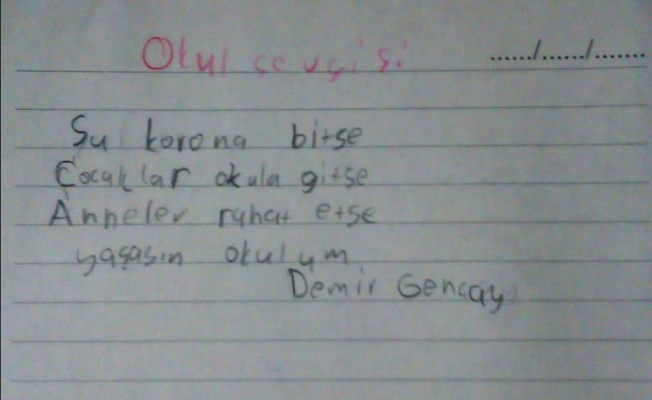 Okul sevgisi ....../....../.......
Şu korona bitse
Çocuklar okula gitse
Anneler rahat etse
yaşasın okulum
Demir Gençay